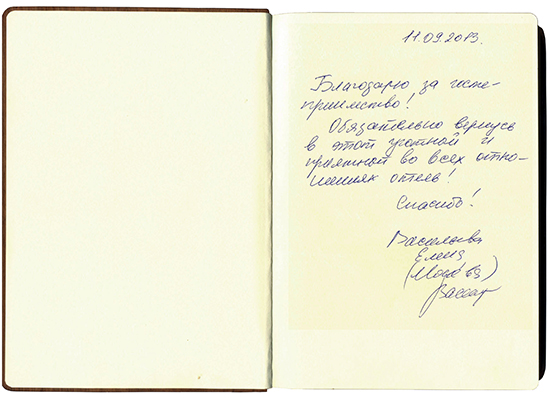 11.09.2013.
Благодарю за госте-
приимство!
Обязательно вернусь
в этот уютной и
приятной во всех отно-
шениях отель!
Спасибо!
Васильева
Елена